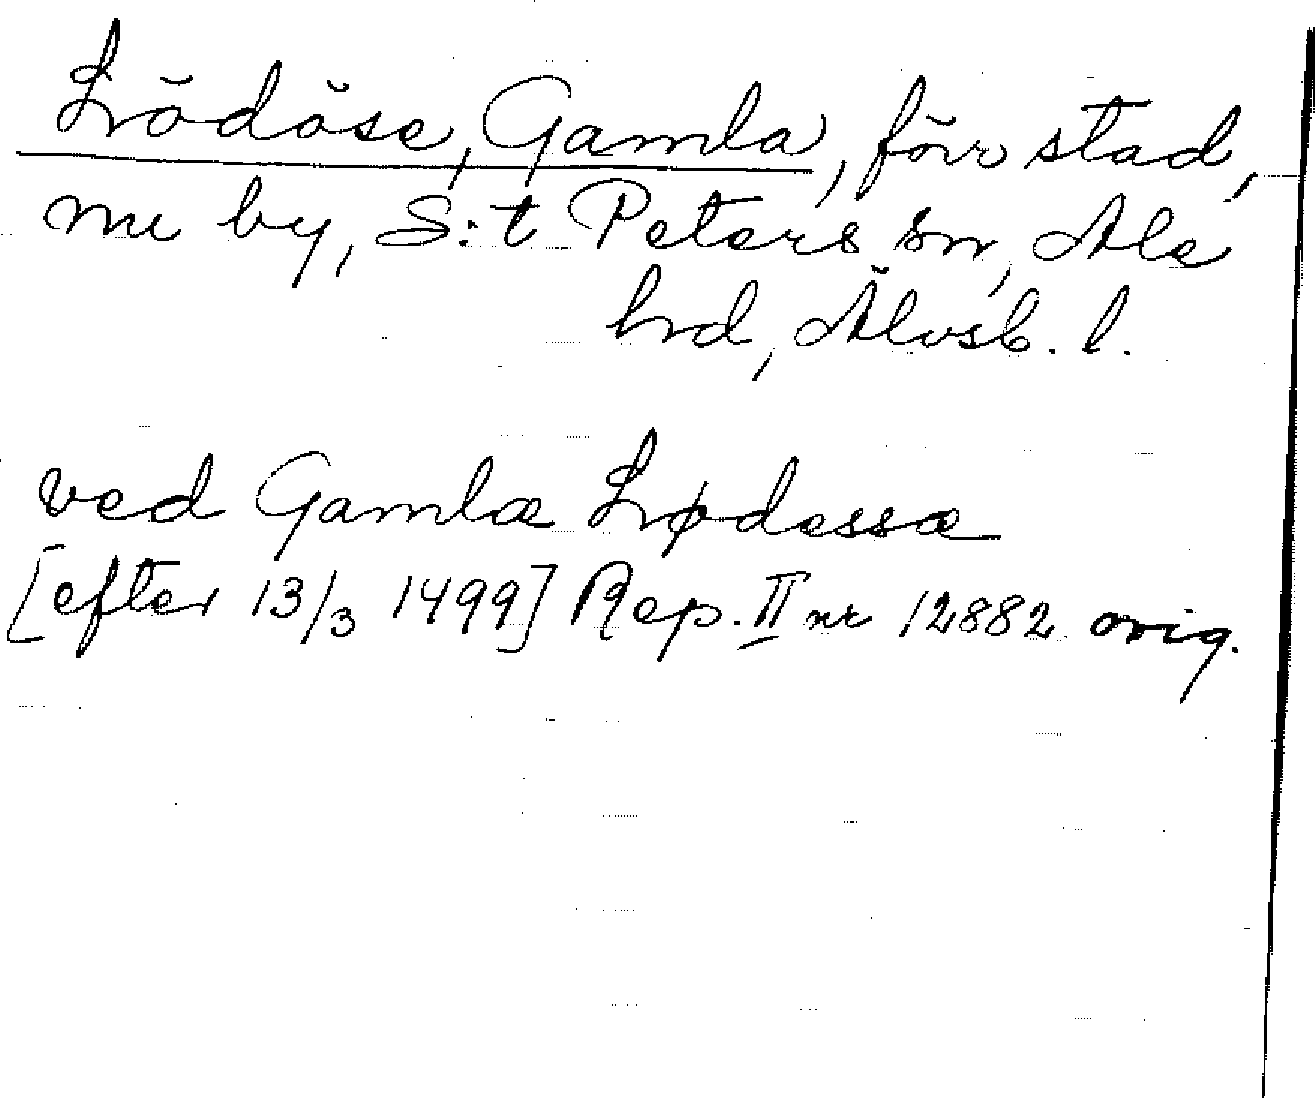 Lödöse, Gamla, förr stad,
nu by, S:t Peters sn, Ale
hd, Älvsb. l.
ved Gamlæ Lødessæ
[efter 13/3 1499] Rep. II nr 12882 orig.